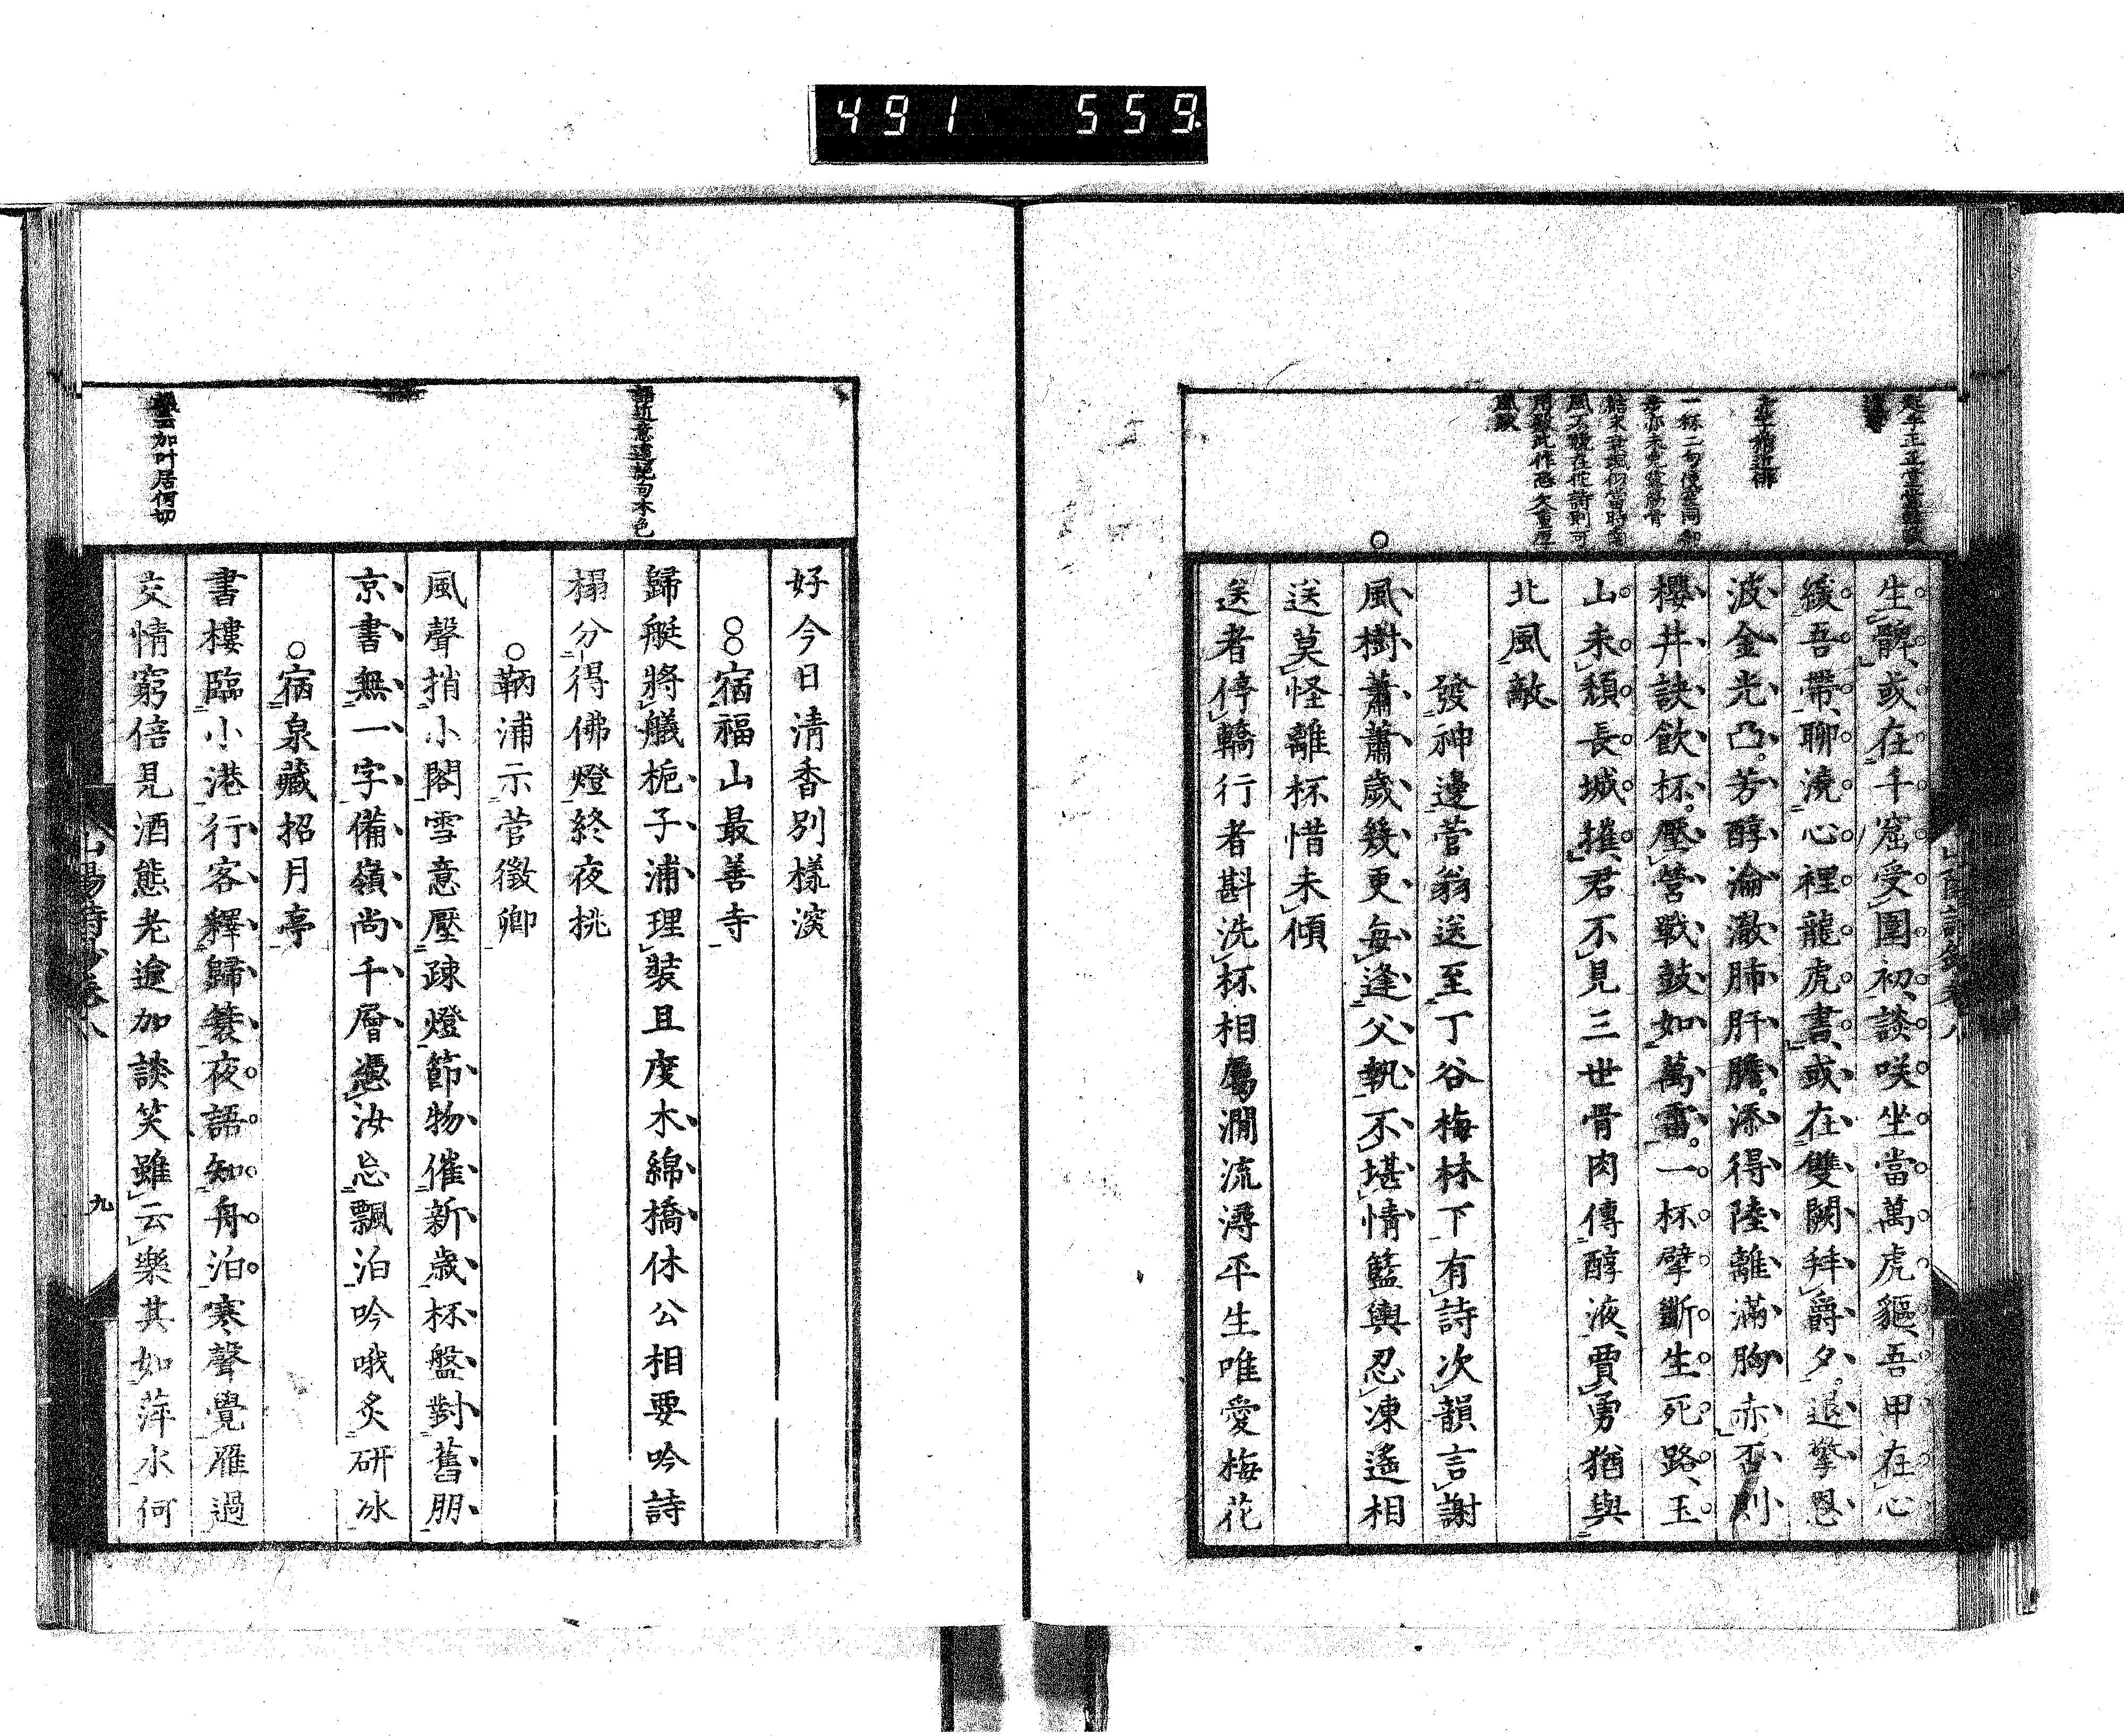 491 559
生髀或在千窟受圍初談咲坐當萬虎貙吾甲在心
緩吾帶聊澆心裡龍虎書或在雙闕拜爵夕退擎恩
波金光凸芳醇淪澈肺肝膽添得陸離滿胸赤否則
櫻井訣飲杯壓營戰鼓如萬雷一杯擘斷生死路玉
山未頹長城摧君不見三世骨肉傳醇液賈勇猶與
北風敵
發神邊菅翁送至丁谷梅林下有詩次韻言謝
風樹蕭蕭歲幾更每逢父執不堪情籃輿忍凍遙相
送莫怪離杯惜未傾
送者停轎行者斟洗杯相屬澗流潯平生唯愛梅花
好今日清香別樣深
宿福山最善寺
歸艇將艤梔子浦理裝且度木綿橋休公相要吟詩
榻分得佛燈終夜挑
鞆浦示菅徵卿
風聲捎小閣雪意壓疎燈節物催新歲杯盤對舊朋
京書無一字備嶺尚千層憑汝忘飄泊吟哦炙研冰
宿泉藏招月亭
書樓臨小港行客釋歸簑夜語知舟泊寒聲覺雁過
交情窮倍見酒態老逾加談笑雖云樂其如萍水何
語近意遠梔句本色
加叶居何切
九